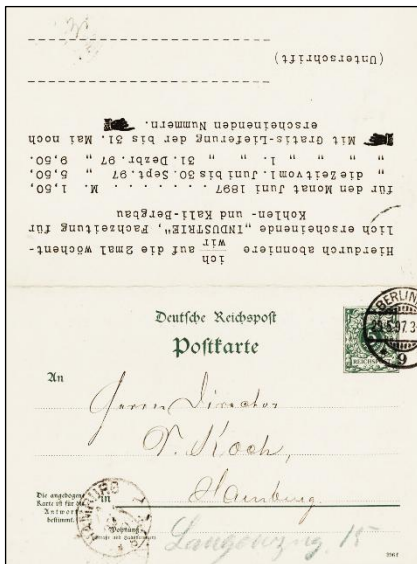 Hierdurch abonniere ich auf die 2mal wöchent-
wir
lich erscheinende „INDUSTRIE“, Fachzeitung für
Kohlen- und Kali-Bergbau
für den Monat Juni 1897 . . . . . . . M. 1,50,
„ die Zeit vom 1. Juni bis 30. Sept. 97 „ 5,50,
„ „ „ 1. „ „ 31. Dezbr. 97 „ 9,50.
Mit Gratis-Lieferung der bis 31. Mai noch
erscheinenden Nummern.
(Unterschrift)
Deutsche Reichspost
Postkarte
BERLIN
97.3
9
REICHSPOST
An
Herrn Director
Koch,
in
Hamburg.
Die angebogene
Karte ist für die
Antwort
bestimmt.
HAMBURG
Wohnung